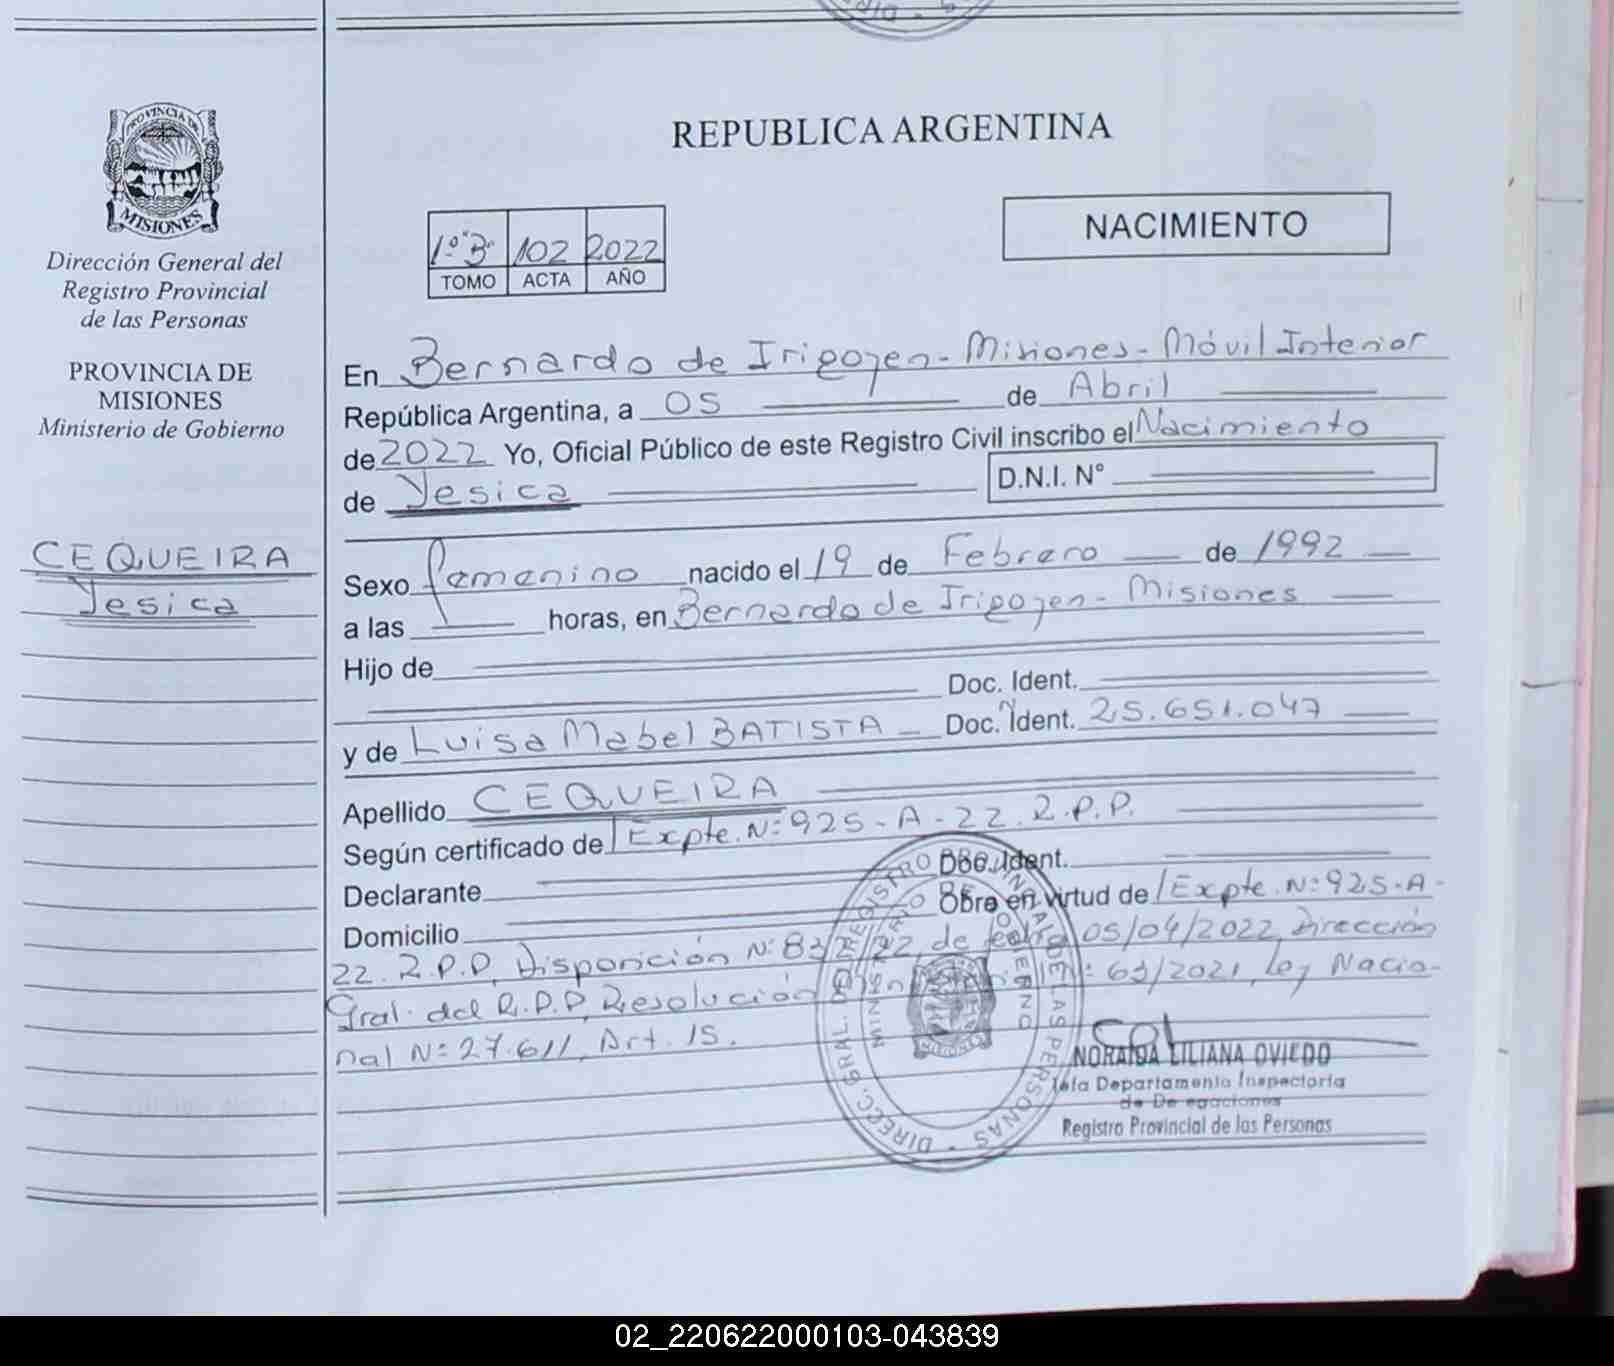 PROVINCIA DE
MISIONES
Dirección General del
Registro Provincial
de las Personas
PROVINCIA DE
MISIONES
Ministerio de Gobierno
CEQUEIRA
Yesica
REPUBLICA ARGENTINA
NACIMIENTO
1º "B" 102 2022
TOMO ACTA AÑO
En Bernardo de Irigoyen - Misiones - Móvil Interior
República Argentina, a 05 de Abril
de 2022 Yo, Oficial Público de este Registro Civil inscribo el Nacimiento
de Yesica D.N.I. N°
Sexo femenino nacido el 19 de Febrero de 1992
a las horas, en Bernardo de Irigoyen - Misiones
Hijo de
Doc. Ident.
y de Luisa Mabel BATISTA Doc. Ident. 25.651.047
Apellido CEQUEIRA
Según certificado de Expte. Nº 925-A-22 R.P.P.
Declarante Doc. Ident.
Domicilio Obra en virtud de Expte. Nº 925-A-
22. R.P.P, Disposición Nº de fecha 05/04/2022, Dirección
Gral. del R.P.P, Resolución 63/2021, Ley Nacio-
nal Nº 27.611, Art. 15.
DIREC. GRAL. DEL REGISTRO PROVINCIAL DE LAS PERSONAS
MINISTERIO DE GOBIERNO
NORAIDA LILIANA OVIEDO
Jefa Departamento Inspectoría
de Delegaciones
Registro Provincial de las Personas
02_220622000103-043839